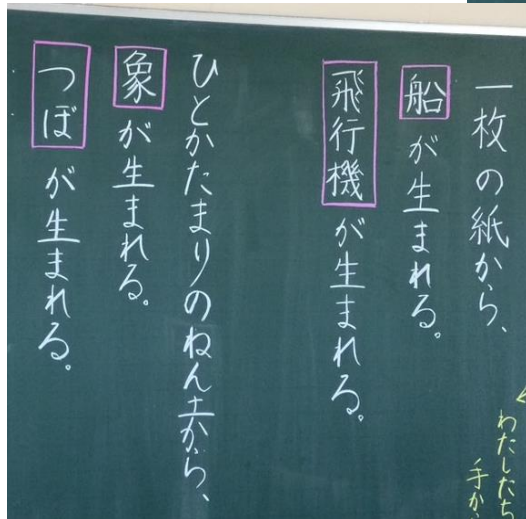 一枚の紙から、
船が生まれる。
飛行機が生まれる。
ひとかたまりのねん土から、
象が生まれる。
つぼが生まれる。
わたしたち
手か